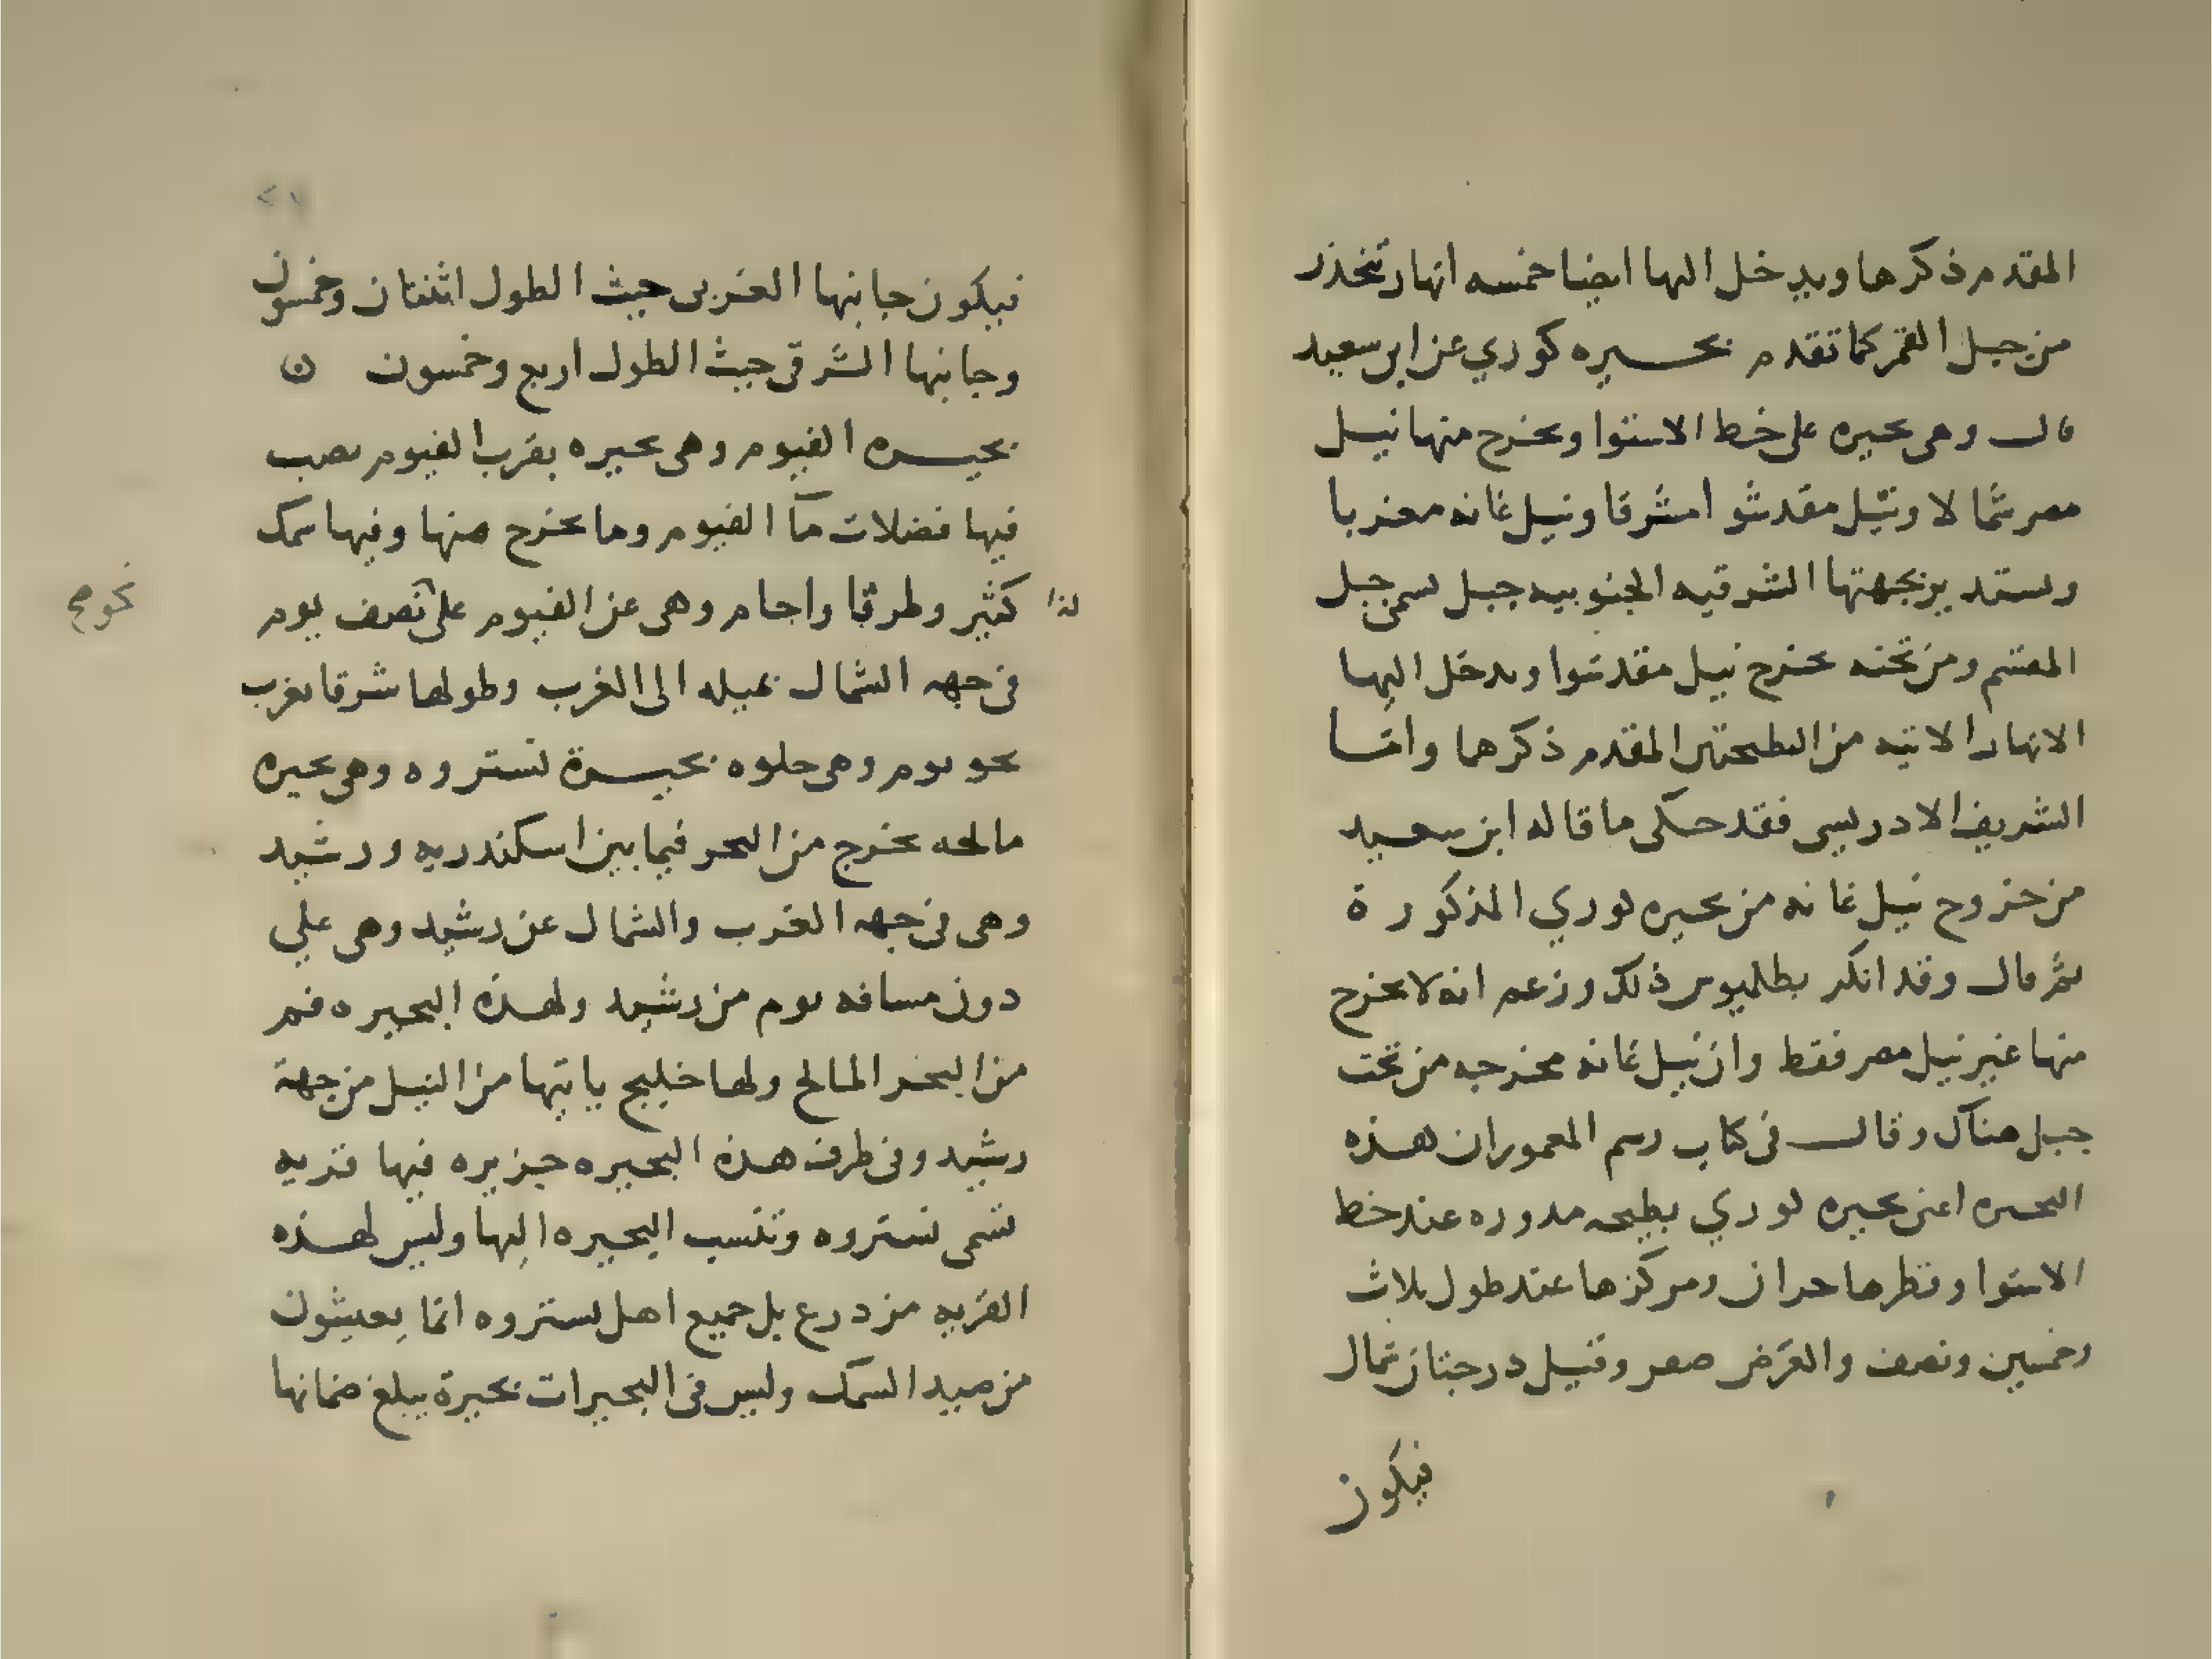 المقدم ذكرها ويدخل اليها ايضا خمسه انهار تنحدر
من جبل القمر كما تقدم بحيره كوري عن ابن سعيد
قال وهى بحيره على خط الاستوا ويخرج منها نيل
مصر شمالا ونيل مقدشوا مشرقا ونيل غانه مغربا
وستد يز بجهتها الشرقيه الجنوبيه جبل يسمى جبل
المقسم ومن تحته يخرج نيل مقدشوا ويدخل اليها
الانهار الاتيه من البطيحتين المقدم ذكرهما وامّا
الشريف الادريسي فقد حكى ما قاله ابن سعيد
من خروج نيل غانه من بحيره كوري المذكورة
ثم قال وقد انكر بطلميوس ذلك وزعم انه لا يخرج
منها غير نيل مصر فقط وان نيل غانه مخرجه من تحت
جبل هناك وقال فى كتاب رسم المعمور ان هذه
البحيره اعنى بحيره كوري بطيحه مدوره عند خط
الاستوا وقطرها جزان ومركزها عند طول ثلاث
وخمسين ونصف والعرض صفر وقيل درجتان شمال
فيكون
٢١
فيكون جانبها الغربى حيث الطول اثنتان وخمسون
وجانبها الشرقى حيث الطول اربع وخمسون ن
بحيره الفيوم وهى بحيره بقرب الفيوم يصب
فيها فضلات مآ الفيوم وما يخرج منها وفيها سمك
كثير وطرفا واجام وهى عن الفيوم على نصف يوم
نحو صح
فى جهه الشمال بميله الى الغرب وطولها شرقا بغرب
نحو يوم وهى حلوه بحيرة نستروه وهى بحيره
مالحه تخرج من البحر فيما بين اسكندريه ورشيد
وهى فى جهه الغرب والشمال عن رشيد وهى علي
دون مسافه يوم من رشيد ولهذه البحيره فم
من البحر المالح ولها خليج ياتيها من النيل من جهة
رشيد وفى طرف هذه البحيره جزيره فيها قريه
تسمى نستروه وتنسب البحيره اليها وليس لهذه
القريه مزدرع بل جميع اهل نستروه انما يعيشون
من صيد السمك وليس فى البحيرات بحيرة يبلغ ضمانها